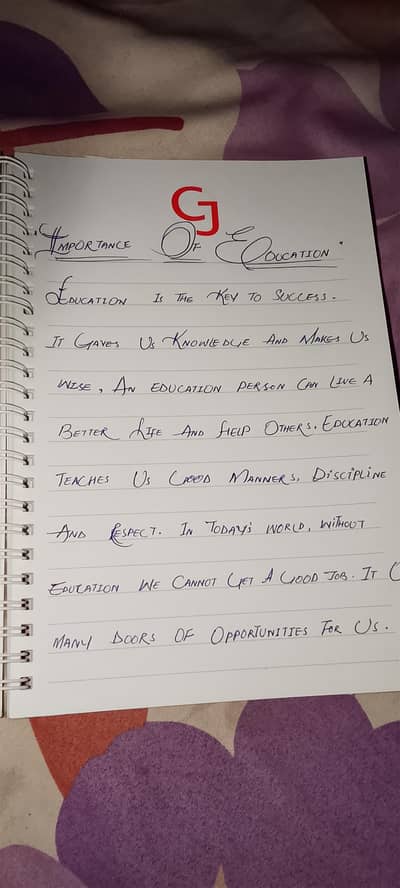 GJ
"IMPORTANCE OF EDUCATION"
EDUCATION IS THE KEY TO SUCCESS.
IT GAVES US KNOWLEDGE AND MAKES US
WISE, AN EDUCATION PERSON CAN LIVE A
BETTER LIFE AND HELP OTHERS. EDUCATION
TEACHES US GOOD MANNERS, DISCIPLINE
AND RESPECT. IN TODAY'S WORLD, WITHOUT
EDUCATION WE CANNOT GET A GOOD JOB. IT
MANY DOORS OF OPPORTUNITIES FOR US.